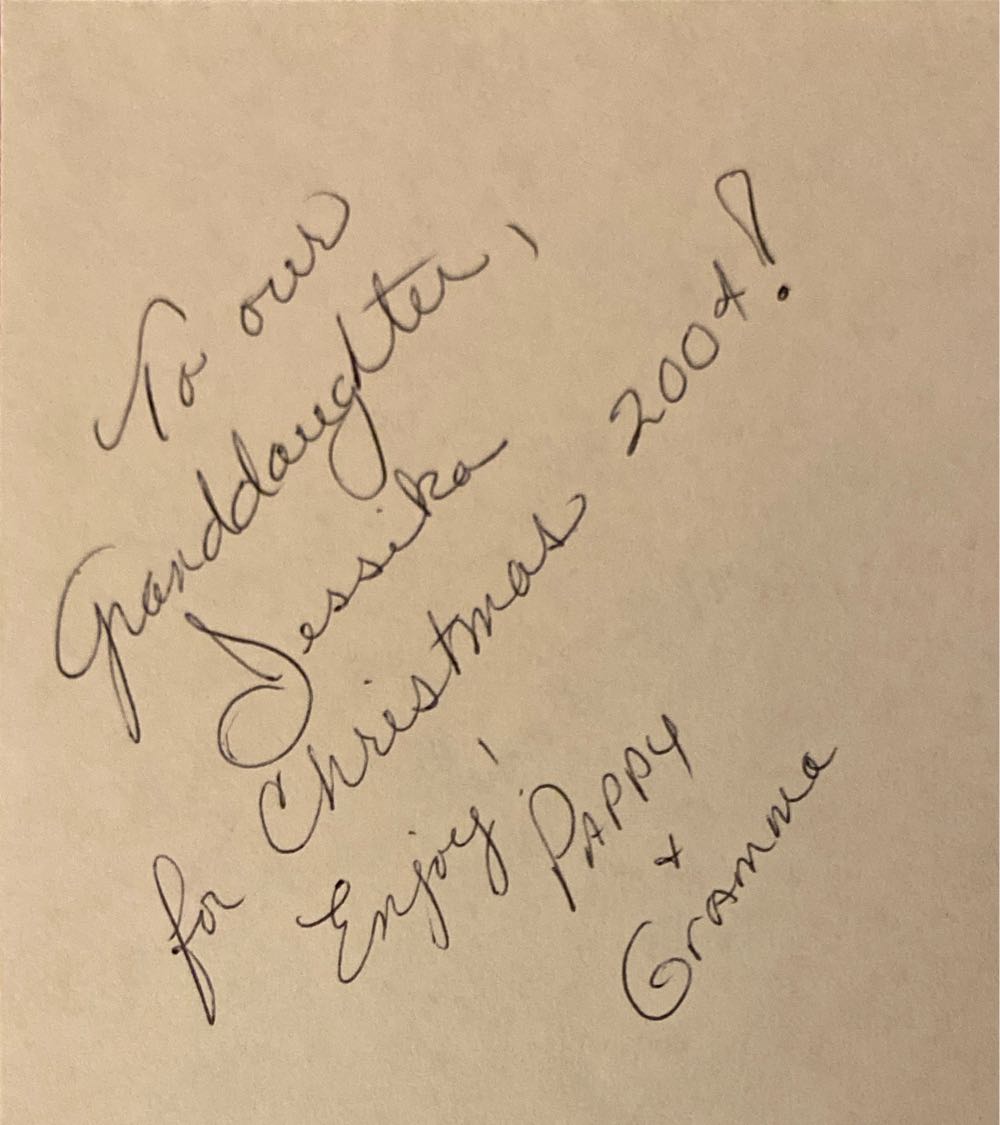 To our
Granddaughter,
Jessika
for Christmas 2004!
Enjoy!
Pappy
+
Gramma